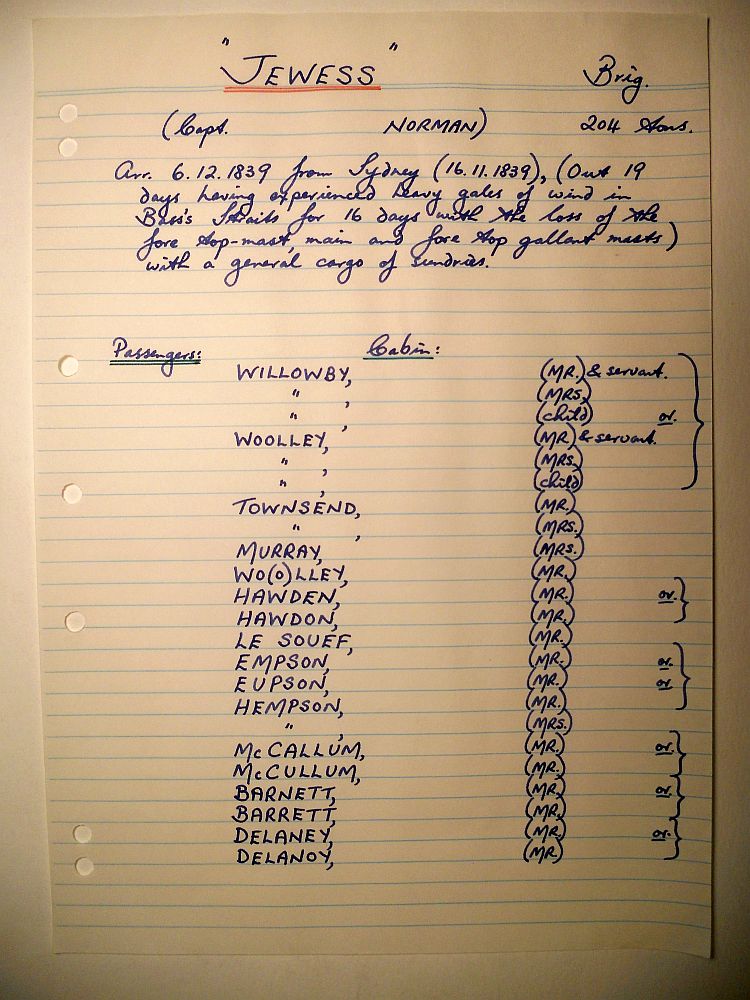 "JEWESS" Brig.
(Capt. NORMAN) 204 tons.
Arr. 6.12.1839 from Sydney (16.11.1839), (Out 19
days having experienced heavy gales of wind in
Bass's Straits for 16 days with the loss of the
fore top-mast, main and fore top gallant masts)
with a general cargo of sundries.
Passengers: Cabin:
WILLOWBY, (MR.) & servant.
" , (MRS.)
" , (child) or.
WOOLLEY, (MR.) & servant.
" , (MRS.)
" , (child)
TOWNSEND, (MR.)
" , (MRS.)
MURRAY, (MRS.)
WO(O)LLEY, (MR.)
HAWDEN, (MR.) or.
HAWDON, (MR.)
LE SOUEF, (MR.)
EMPSON, (MR.) or.
EUPSON, (MR.) or.
HEMPSON, (MR.)
" , (MRS.)
McCALLUM, (MR.) or.
McCULLUM, (MR.)
BARNETT, (MR.) or.
BARRETT, (MR.)
DELANEY, (MR.) or.
DELANOY, (MR.)